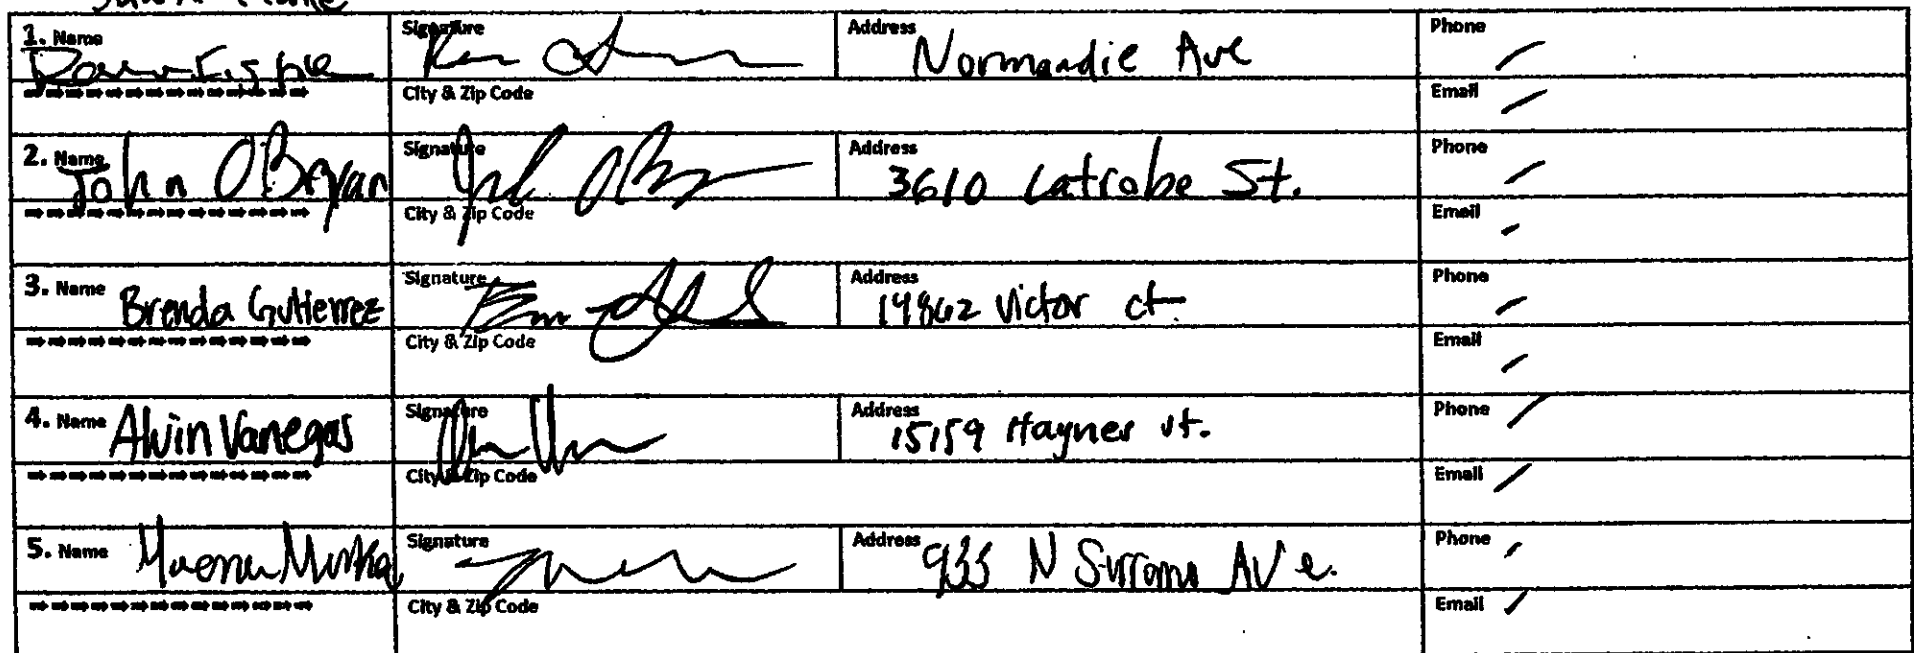 1. Name Signature Address Normandie Ave Phone
City & Zip Code Email
2. Name John OBryan Signature Address 3610 Latrobe St. Phone
City & Zip Code Email
3. Name Brenda Gutierrez Signature Address 19862 Victor ct. Phone
City & Zip Code Email
4. Name Alvin Vanegas Signature Address 15159 Hayner st. Phone
City & Zip Code Email
5. Name Signature Address 933 N Ave. Phone
City & Zip Code Email